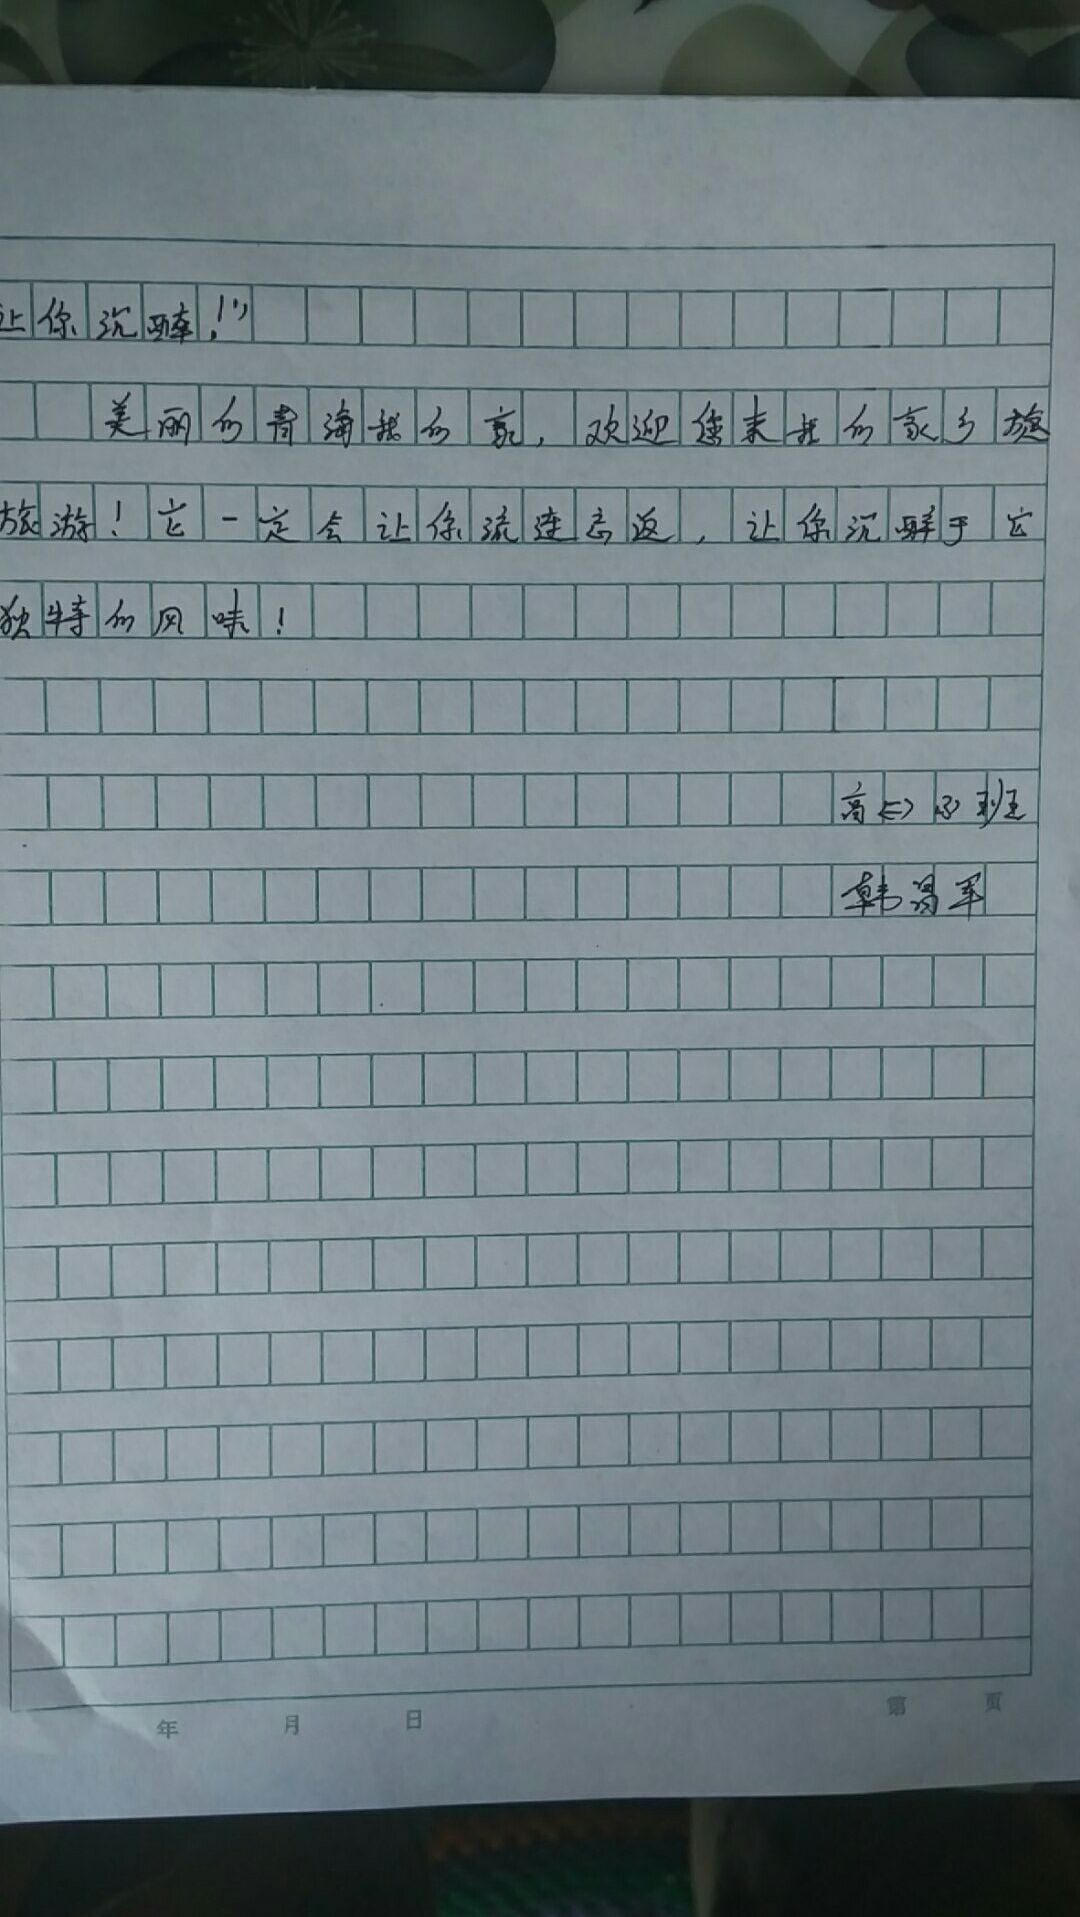 让你沉醉！”
美丽的青海我的家，欢迎您来我的家乡旅
旅游！它一定会让你流连忘返，让你沉醉于它
独特的风味！
高（二）（3）班
韩昌军
年 月 日 第 页